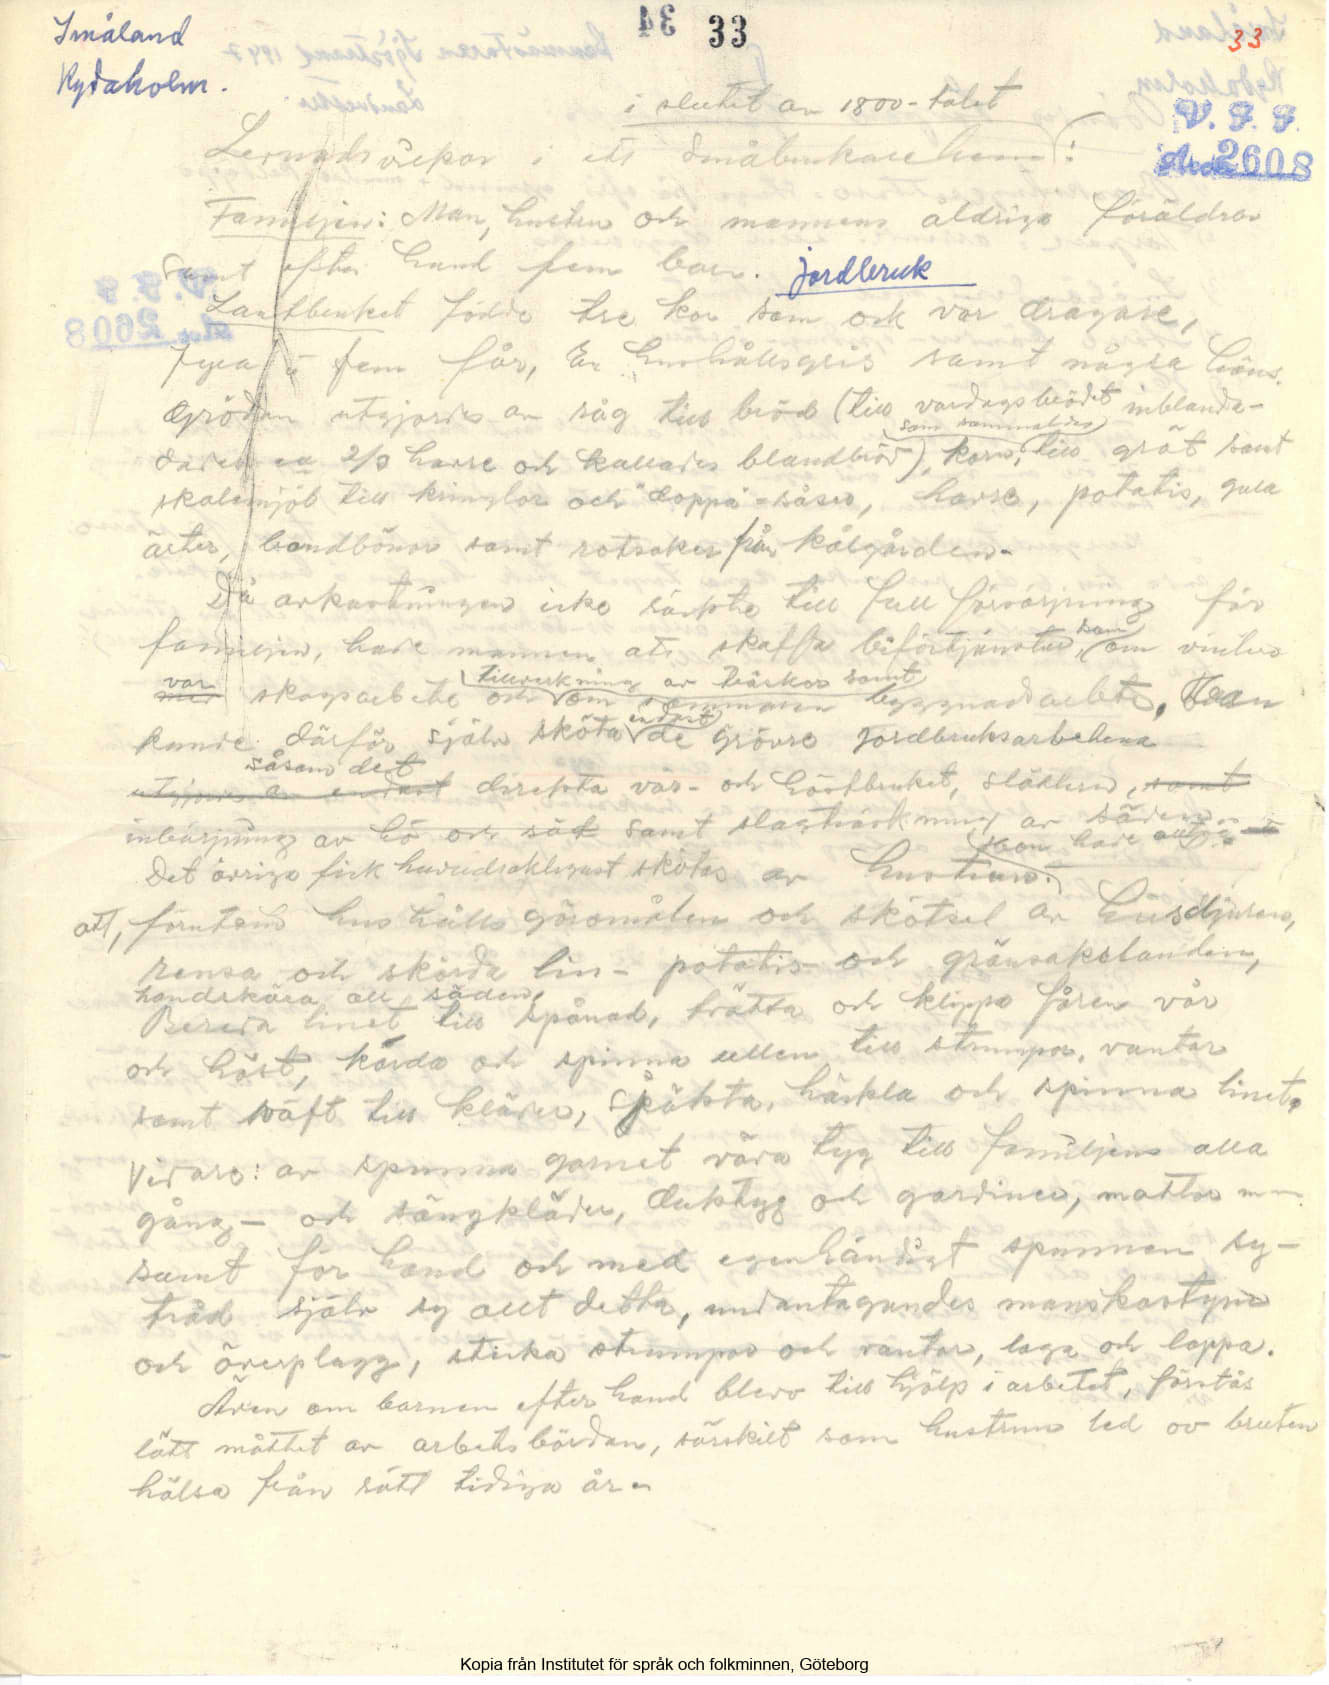 Småland
Rydaholm.
33
33
V. F. F.
Acc. 2608
i slutet av 1800-talet
Levnadsvillkor i ett småbrukarehem:
Familjen: Man, hustru och mannens åldriga föräldrar
samt efter hand fem barn. jordbruk
Lantbruket födde tre kor som ock var dragare,
fyra à fem får, en hushållsgris samt några höns.
Grödan utgjordes av råg till bröd (till vardagsbrödet inblanda-
dades ca 2/3 havre och kallades blandbröd), korn, som sammaldes till gröt samt
skalmjöl till kringlor och "doppa"-såser, havre, potatis, gula
ärter, bondbönor samt rotsaker från kålgården.
Då avkastningen icke räckte till full försörjning för
familjen, hade mannen att skaffa biförtjänster, som om vintern
var skogsarbete och tillverkning av träskor samt om sommaren byggnadsarbete. Han
kunde därför själv sköta endast de grövre jordbruksarbetena
såsom det direkta vår- och höstbruket, slåttern, samt
inbärgning av hö och säd samt slagtröskning av säden.
Det övriga fick huvudsakligast skötas av hustrun. Hon hade
att, förutom hushållsgöromålen och skötsel av husdjuren,
rensa och skörda lin- potatis- och grönsakslanden,
handskära all säden,
Bereda linet till spånad, tvätta och klippa fåren vår
och höst, karda och spinna ullen till strumpor, vantar
samt väft till kläder, skäkta, häckla och spinna linet.
Vidare: av spunna garnet väva tyg till familjens alla
gång- och sängkläder, duktyg och gardiner, mattor m m
samt för hand och med egenhändigt spunnen sy-
tråd själv sy allt detta, undantagandes manskostym
och överplagg, sticka strumpor och vantar, laga och lappa.
Även om barnen efter hand blevo till hjälp i arbetet, förstås
lätt måttet av arbetsbördan, särskilt som hustrun led av bruten
hälsa från rätt tidiga år.
Kopia från Institutet för språk och folkminnen, Göteborg